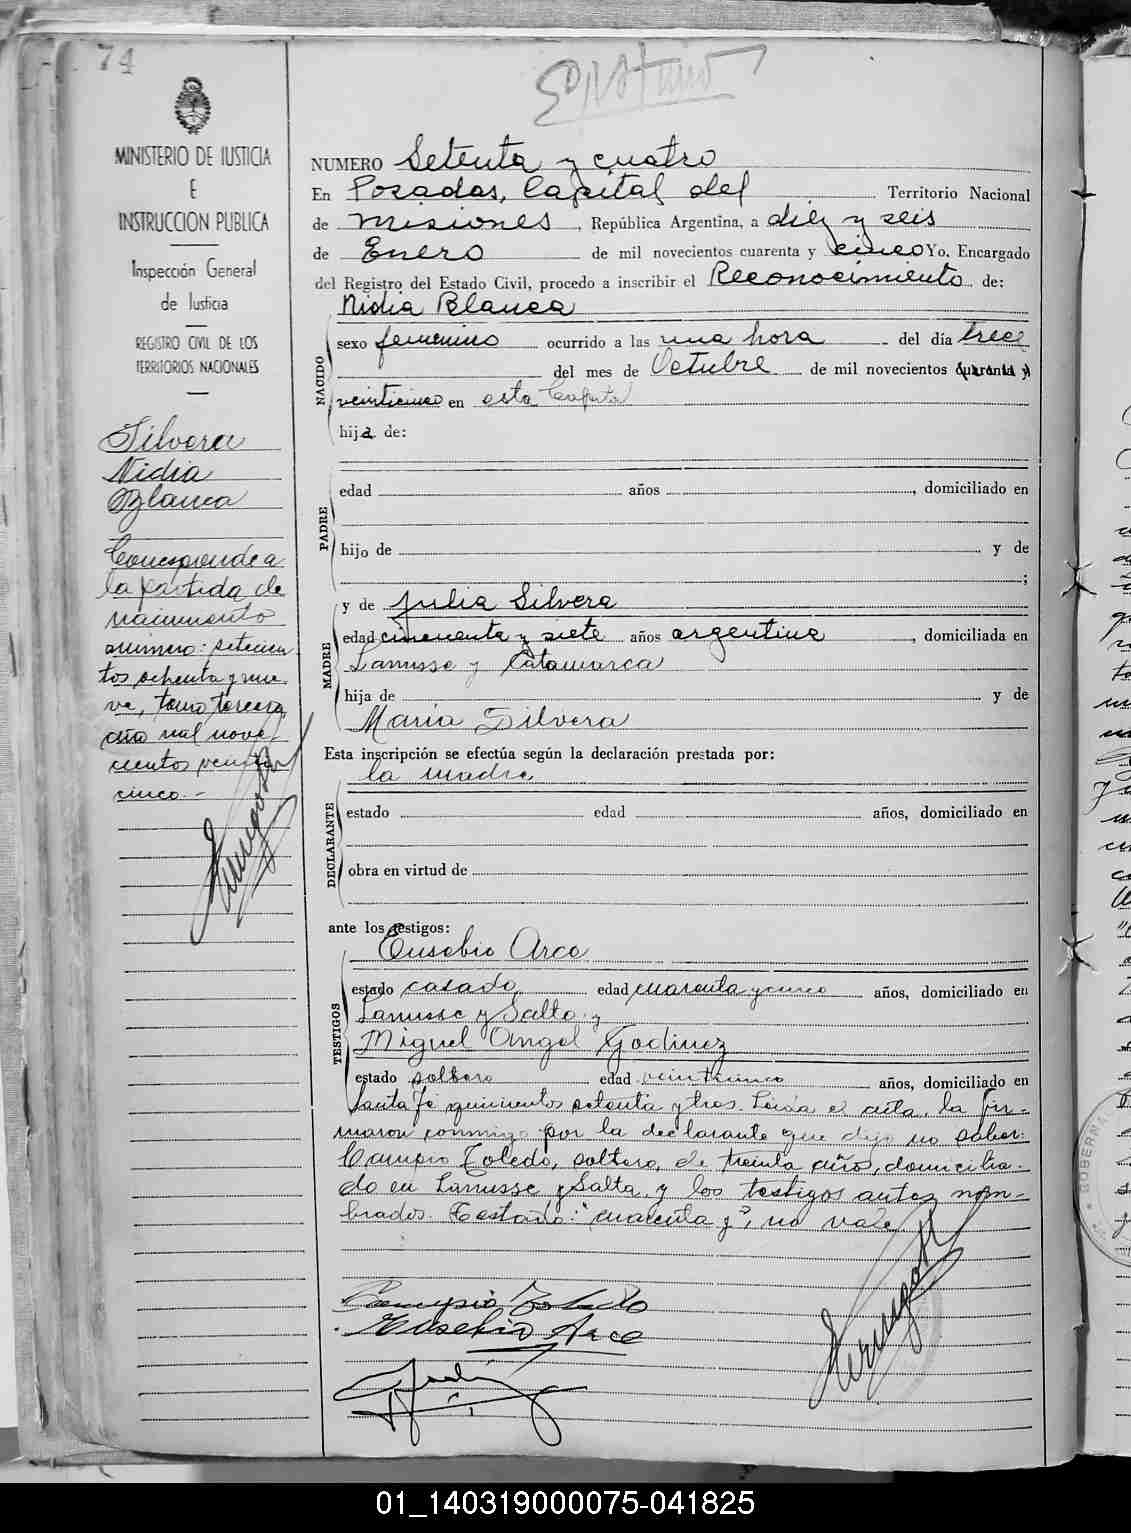 74
MINISTERIO DE JUSTICIA
E
INSTRUCCION PUBLICA
Inspección General
de Justicia
REGISTRO CIVIL DE LOS
TERRITORIOS NACIONALES
Silvera
Nidia
Blanca
Corresponde a
la partida de
nacimiento
número: setecien
tos ochenta y nue
ve, tomo tercero
año mil nove
cientos veinti
cinco.-
NUMERO Setenta y cuatro
En Posadas, Capital del Territorio Nacional
de Misiones, República Argentina, a diez y seis
de Enero de mil novecientos cuarenta y cinco Yo, Encargado
del Registro del Estado Civil, procedo a inscribir el Reconocimiento de:
Nidia Blanca
NACIDO
sexo femenino ocurrido a las una hora del día trece
del mes de Octubre de mil novecientos cuarenta y
veinticinco en esta Capital
hija de:
PADRE
edad años , domiciliado en
hijo de y de
;
y de Julia Silvera
MADRE
edad cincuenta y siete años argentina , domiciliada en
Lanusse y Catamarca
hija de y de
María Silvera
Esta inscripción se efectúa según la declaración prestada por:
la madre
DECLARANTE
estado edad años, domiciliado en
obra en virtud de
ante los testigos:
Eusebio Arce
TESTIGOS
estado casado edad cuarenta y cinco años, domiciliado en
Lanusse y Salta y
Miguel Angel Godinez
estado soltero edad veinticinco años, domiciliado en
Santa Fé quinientos setenta y tres. Leida el acta, la fir-
maron conmigo por la declarante que dijo no saber:
Campio Toledo, soltero, de treinta años, domicilia-
do en Lanusse y Salta, y los testigos antes nom-
brados. Testado: "cuarenta y", no vale
Campio Toledo
Eusebio Arce
GOBERNA
01_140319000075-041825